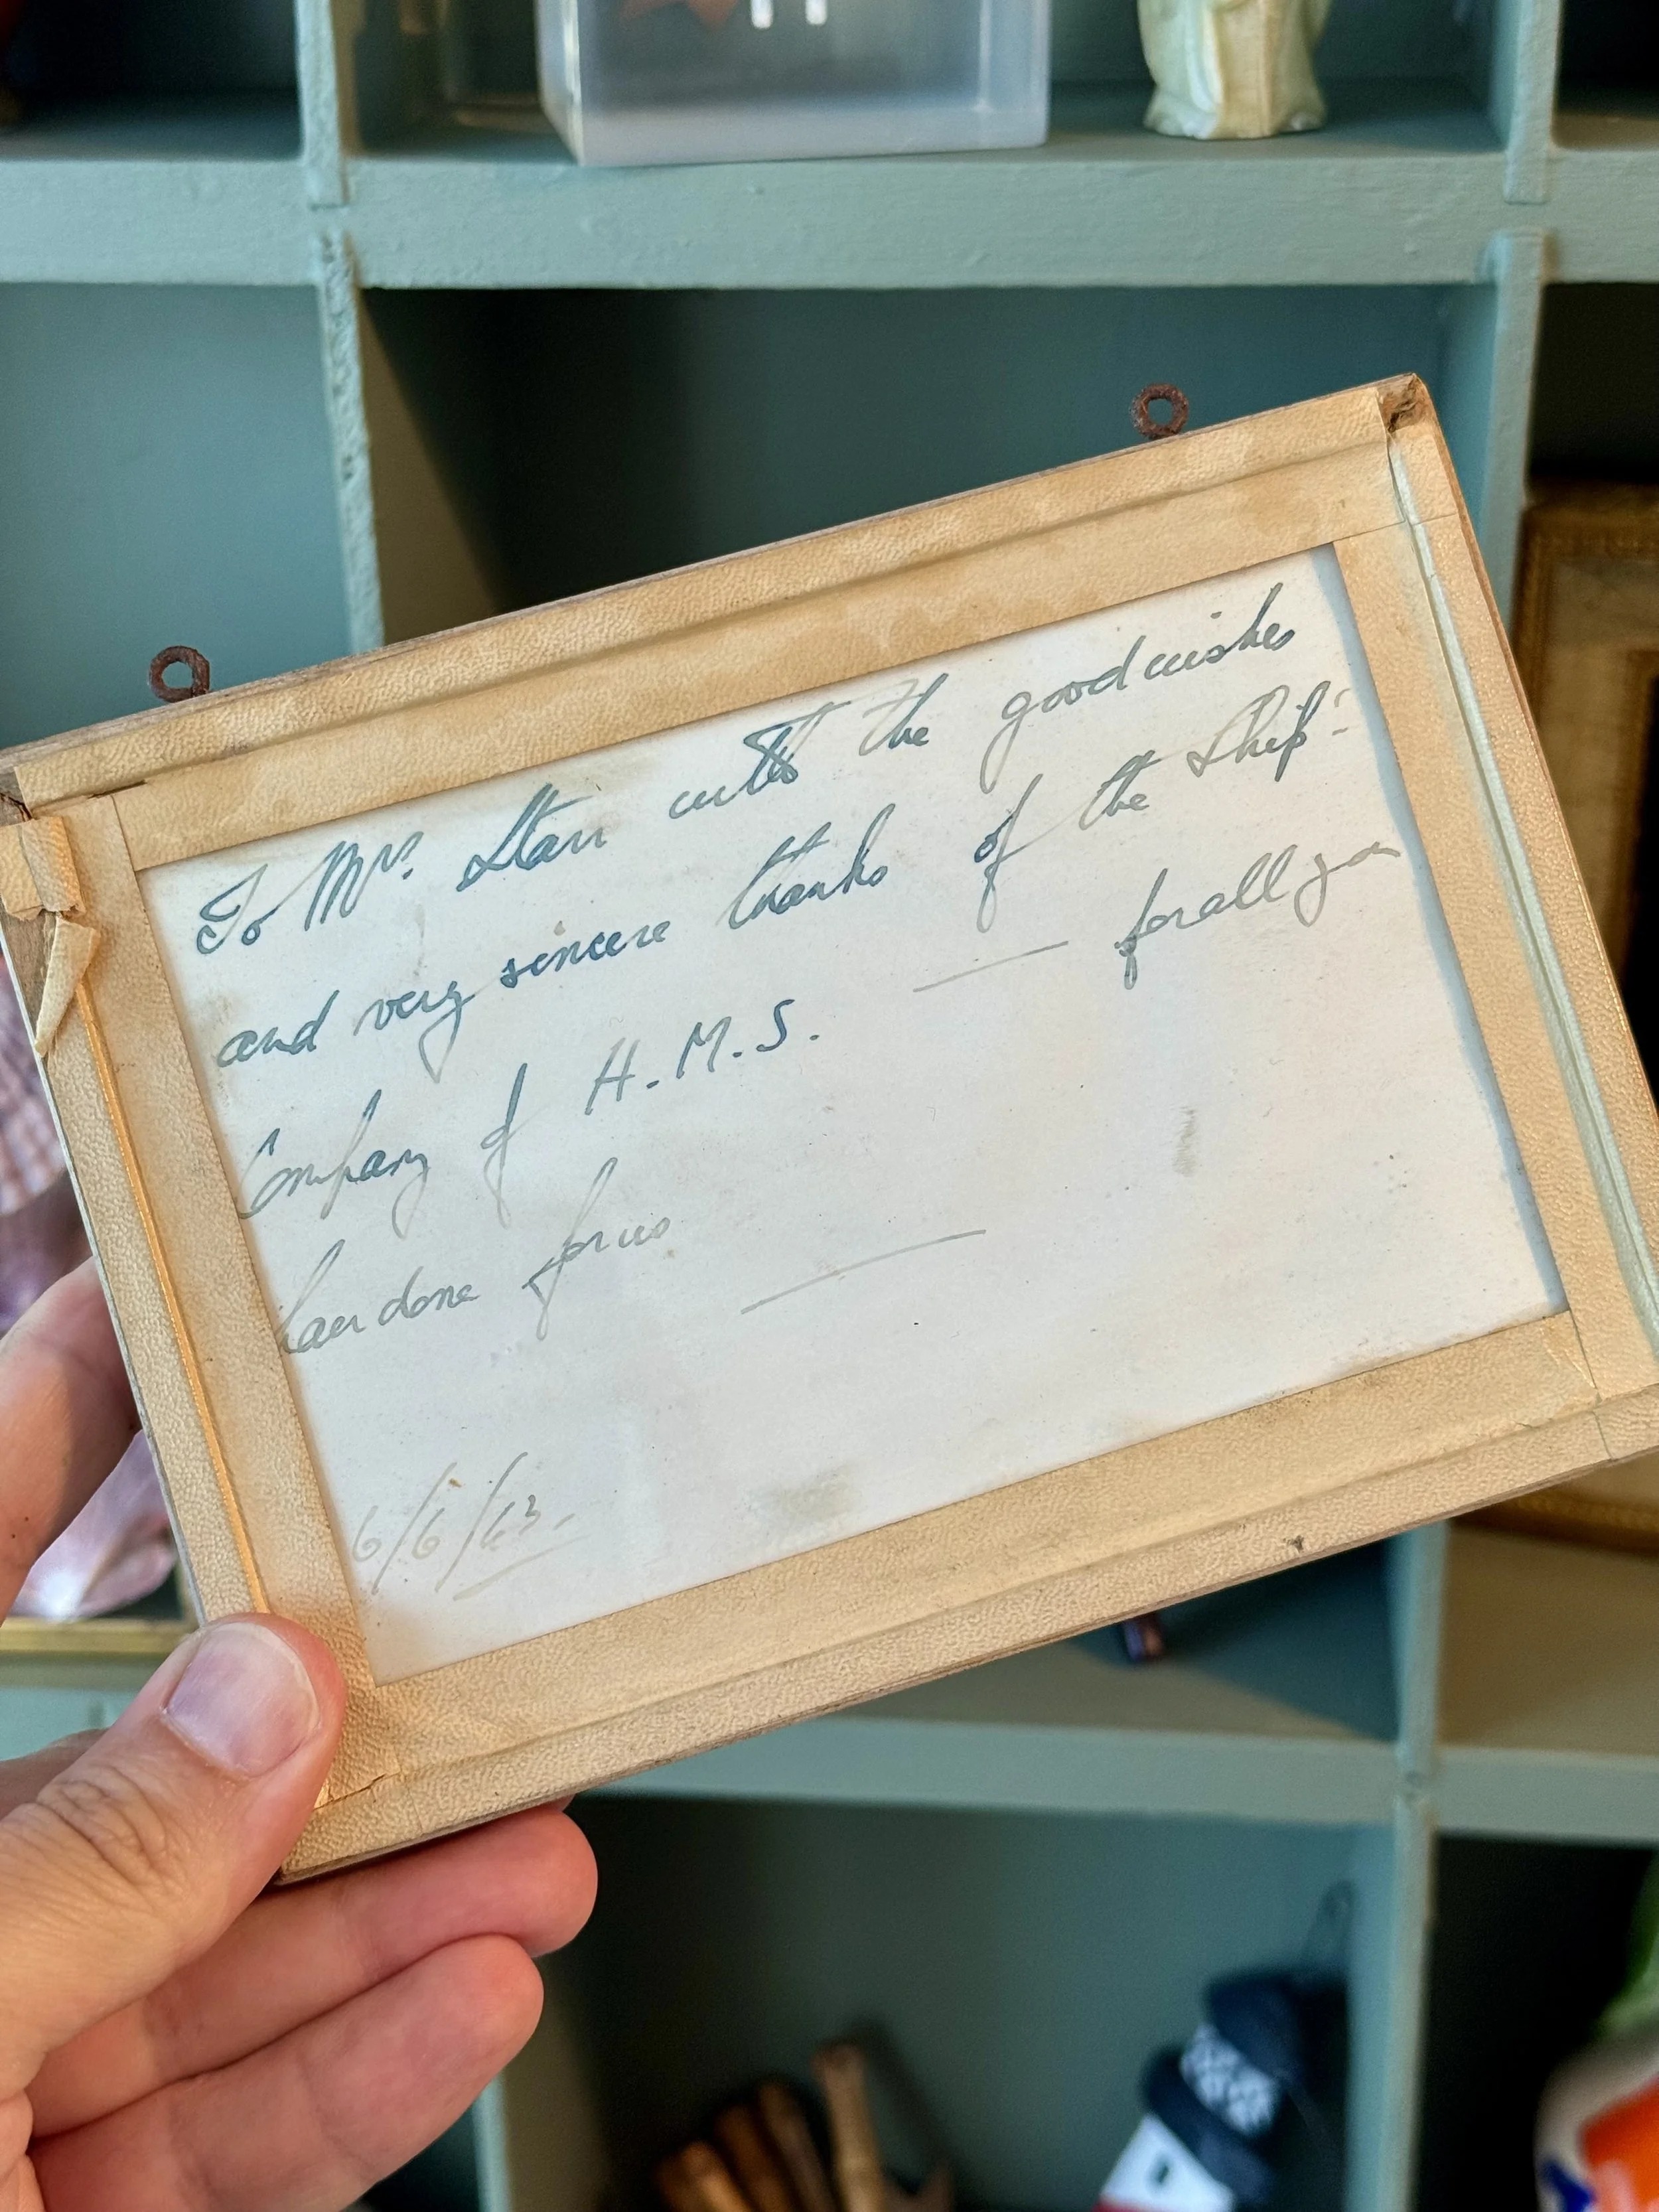 To Mrs. Starr with the good wishes
and very sincere thanks of the Ship's
Company of H.M.S. — for all yo
have done for us —
6/6/43.